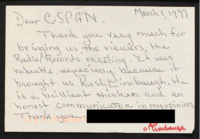 March 1, 1997
Dear C-SPAN,
Thank you very much for
bringing us the viewers, the
Radio/Records meeting. It was
valuable especially because it
brought us Rush Limbaugh. He
is a brilliant thinker and an
honest communicator in my opinion.
Thank you.